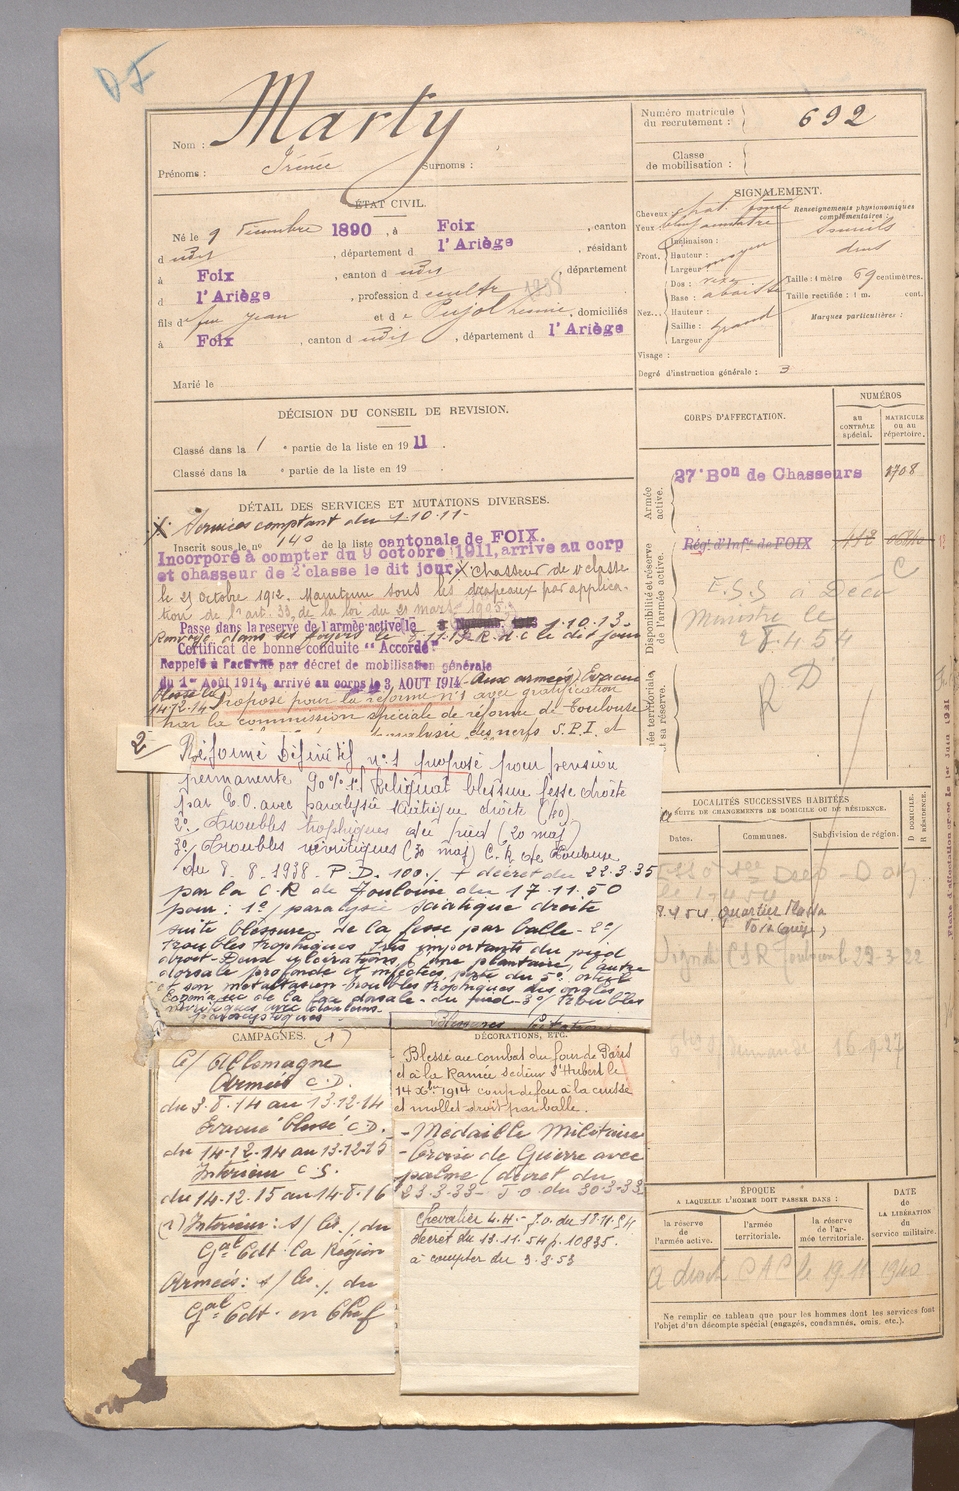 DF
Nom : Marty
Prénoms : Irénée Surnoms :
ÉTAT CIVIL.
Né le 9 Décembre 1890, à Foix, canton
d udit, département d l'Ariège, résidant
à Foix, canton d udit, département
d l'Ariège, profession d cultr 1938
fils d feu Jean et d e Pujol, domiciliés
à Foix, canton d udit, département d l'Ariège
Marié le
DÉCISION DU CONSEIL DE REVISION.
Classé dans la 1 e partie de la liste en 1911.
Classé dans la e partie de la liste en 19 .
DÉTAIL DES SERVICES ET MUTATIONS DIVERSES.
X Services comptant du 1-10-11-
Inscrit sous le no 140 de la liste cantonale de FOIX.
Incorporé à compter du 9 octobre 1911, arrivé au corp
et chasseur de 2e classe le dit jour. X chasseur de 1e classe
le octobre 1912. Maintenu sous les drapeaux par applica-
tion de l'art. 33 de la loi du 21 mars 1905.
Passe dans la réserve de l'armée active le 1.10.13-
Renvoyé dans ses foyers le dit jour
Certificat de bonne conduite "Accordé"
Rappelé à l'activité par décret de mobilisation générale
du 1er Août 1914, arrivé au corps le 3 AOUT 1914 Aux armées Evacué
blessé le
14-12-14 Proposé pour la réforme no 1 avec gratification
par la commission spéciale de réforme de Toulouse
des nerfs S.P.I. et
2
Réformé Définitif no 1 proposé pour pension
permanente 90% 1o Reliquat blessure fesse droite
par E.O. avec paralysie sciatique droite (60)
2o Troubles trophiques du pied (20 maj)
3o/ Troubles névritiques (30 maj) C.R de Toulouse
du 8.8.1938 - P.D. 100% + décret du 22.3.35
par la C.R de Toulouse du 17.11.50
pour : 1o/ paralysie sciatique droite
suite blessure de la fesse par balle - 2o/
Troubles trophiques très importants du pied
droit - Deux ulcérations, l'une plantaire, l'autre
dorsale profonde et infectée, perte du 5e orteil
et son métatarsien troubles trophiques des ongles
Eczema de la face dorsale - du pied - 3o/ Troubles
névritiques avec douleurs
CAMPAGNES. (1)
C/ Allemagne
Armées C.D.
du 3.8.14 au 13.12.14
Evacué "blessé" C.D.
du 14-12-14 au 13-12-15
Intérieur C.S.
du 14.12.15 au 14.8.16
(1) Intérieur : s/ Cés/ du
Gal Cdt la Région
Armées : s/ Cés/ du
Gal Cdt en Chef
DÉCORATIONS, ETC.
Blessé au combat du four de Paris
et à la Ramée secteur St Hubert le
14 Xbre 1914 coup de feu à la cuisse
et mollet droit par balle.
- Médaille Militaire
- Croix de Guerre avec
palme (décret du
23.3.33 - J.O du 30.3.33
Chevalier L.H. - J.O. du 18.11.54
décret du 13.11.54 p. 10835.
à compter du 3.8.53
Numéro matricule du recrutement : 692
Classe de mobilisation :
SIGNALEMENT.
Cheveux chat. foncé
Yeux
Front. Inclinaison :
Hauteur :
Largeur moyen
Nez... Dos :
Base : abaissée
Hauteur :
Saillie : grand
Largeur
Visage :
Degré d'instruction générale : 3
Renseignements physionomiques complémentaires :
sourcils
drus
Taille : 1 mètre 69 centimètres.
Taille rectifiée : 1 m. cent.
Marques particulières :
CORPS D'AFFECTATION.
NUMÉROS
AU CONTRÔLE spécial.
MATRICULE OU AU répertoire.
Armée active.
27e Bon de Chasseurs 3708
Disponibilité et réserve de l'armée active.
Régt d'Infie de FOIX
C
E.S.S à Déco
Ministre le
28.4.54
Armée territoriale et sa réserve.
R D
LOCALITÉS SUCCESSIVES HABITÉES
PAR SUITE DE CHANGEMENTS DE DOMICILE OU DE RÉSIDENCE.
Dates. Communes. Subdivision de région. D DOMICILE. R RÉSIDENCE.
8.4.54. Quartier Flassa
Foix
22-3-22
demande 16-9-27
ÉPOQUE
A LAQUELLE L'HOMME DOIT PASSER DANS :
DATE DE LA LIBÉRATION du service militaire.
la réserve de l'armée active.
l'armée territoriale.
la réserve de l'armée territoriale.
A droit C A C le 19.11 1940
Ne remplir ce tableau que pour les hommes dont les services font
l'objet d'un décompte spécial (engagés, condamnés, omis, etc.).